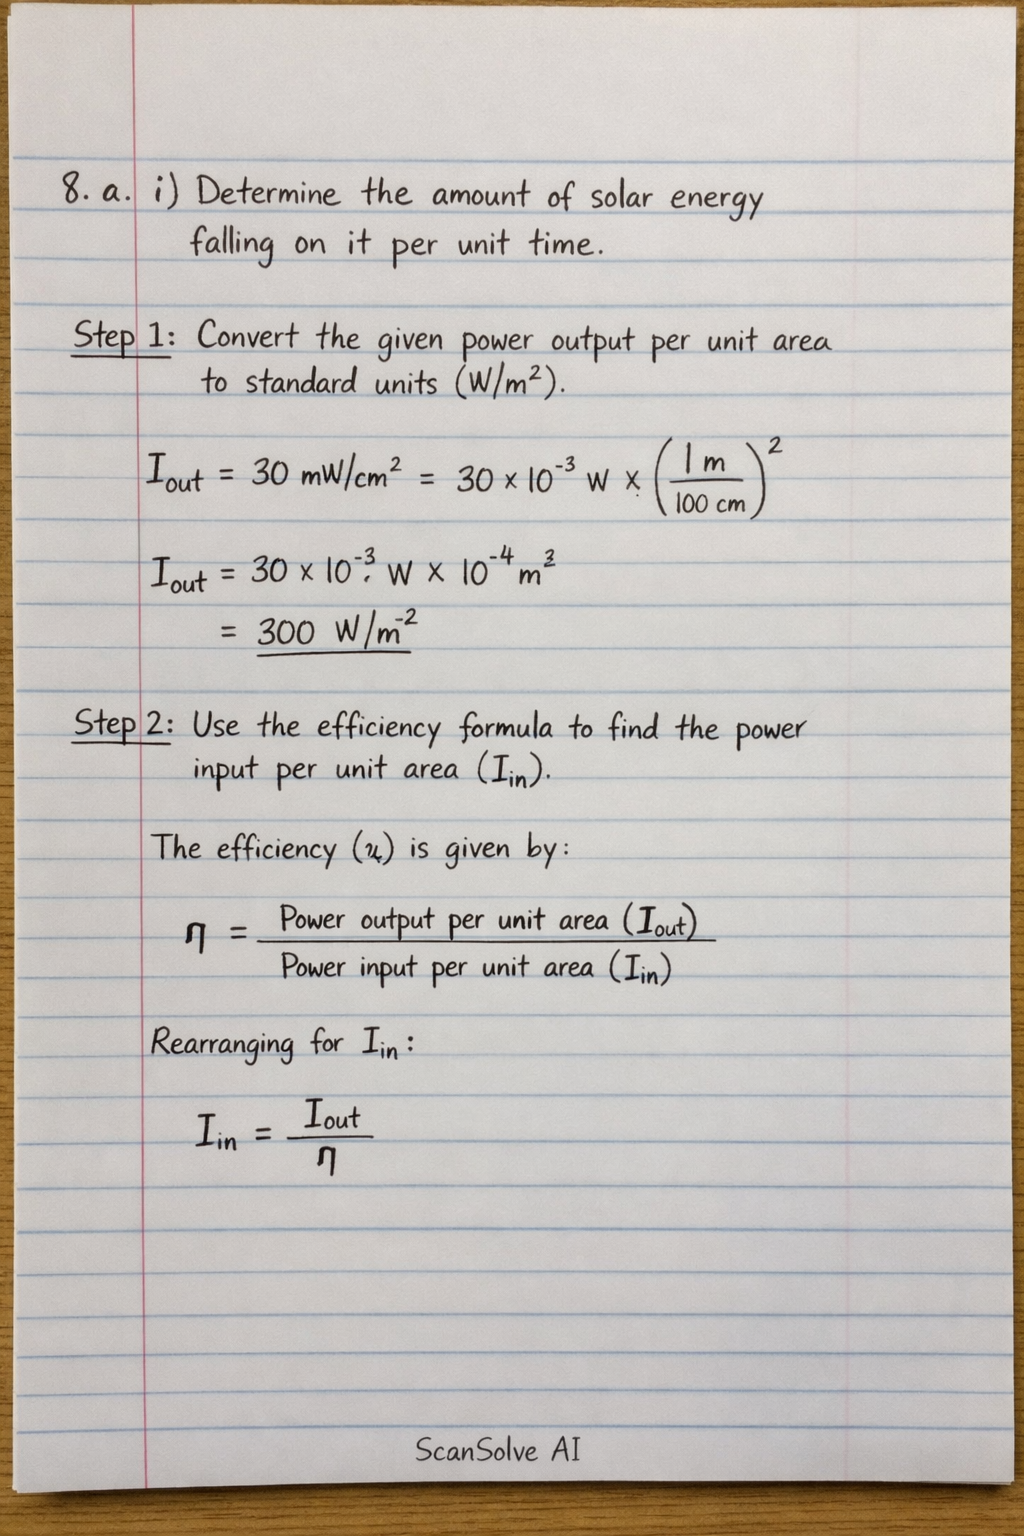 8. a. i) Determine the amount of solar energy
falling on it per unit time.
Step 1: Convert the given power output per unit area
to standard units (W/m²).
I_out = 30 mW/cm² = 30 × 10⁻³ W × (1 m / 100 cm)²
I_out = 30 × 10⁻³ W × 10⁻⁴ m²
= 300 W/m⁻²
Step 2: Use the efficiency formula to find the power
input per unit area (I_in).
The efficiency (η) is given by:
η = Power output per unit area (I_out) / Power input per unit area (I_in)
Rearranging for I_in:
I_in = I_out / η
ScanSolve AI